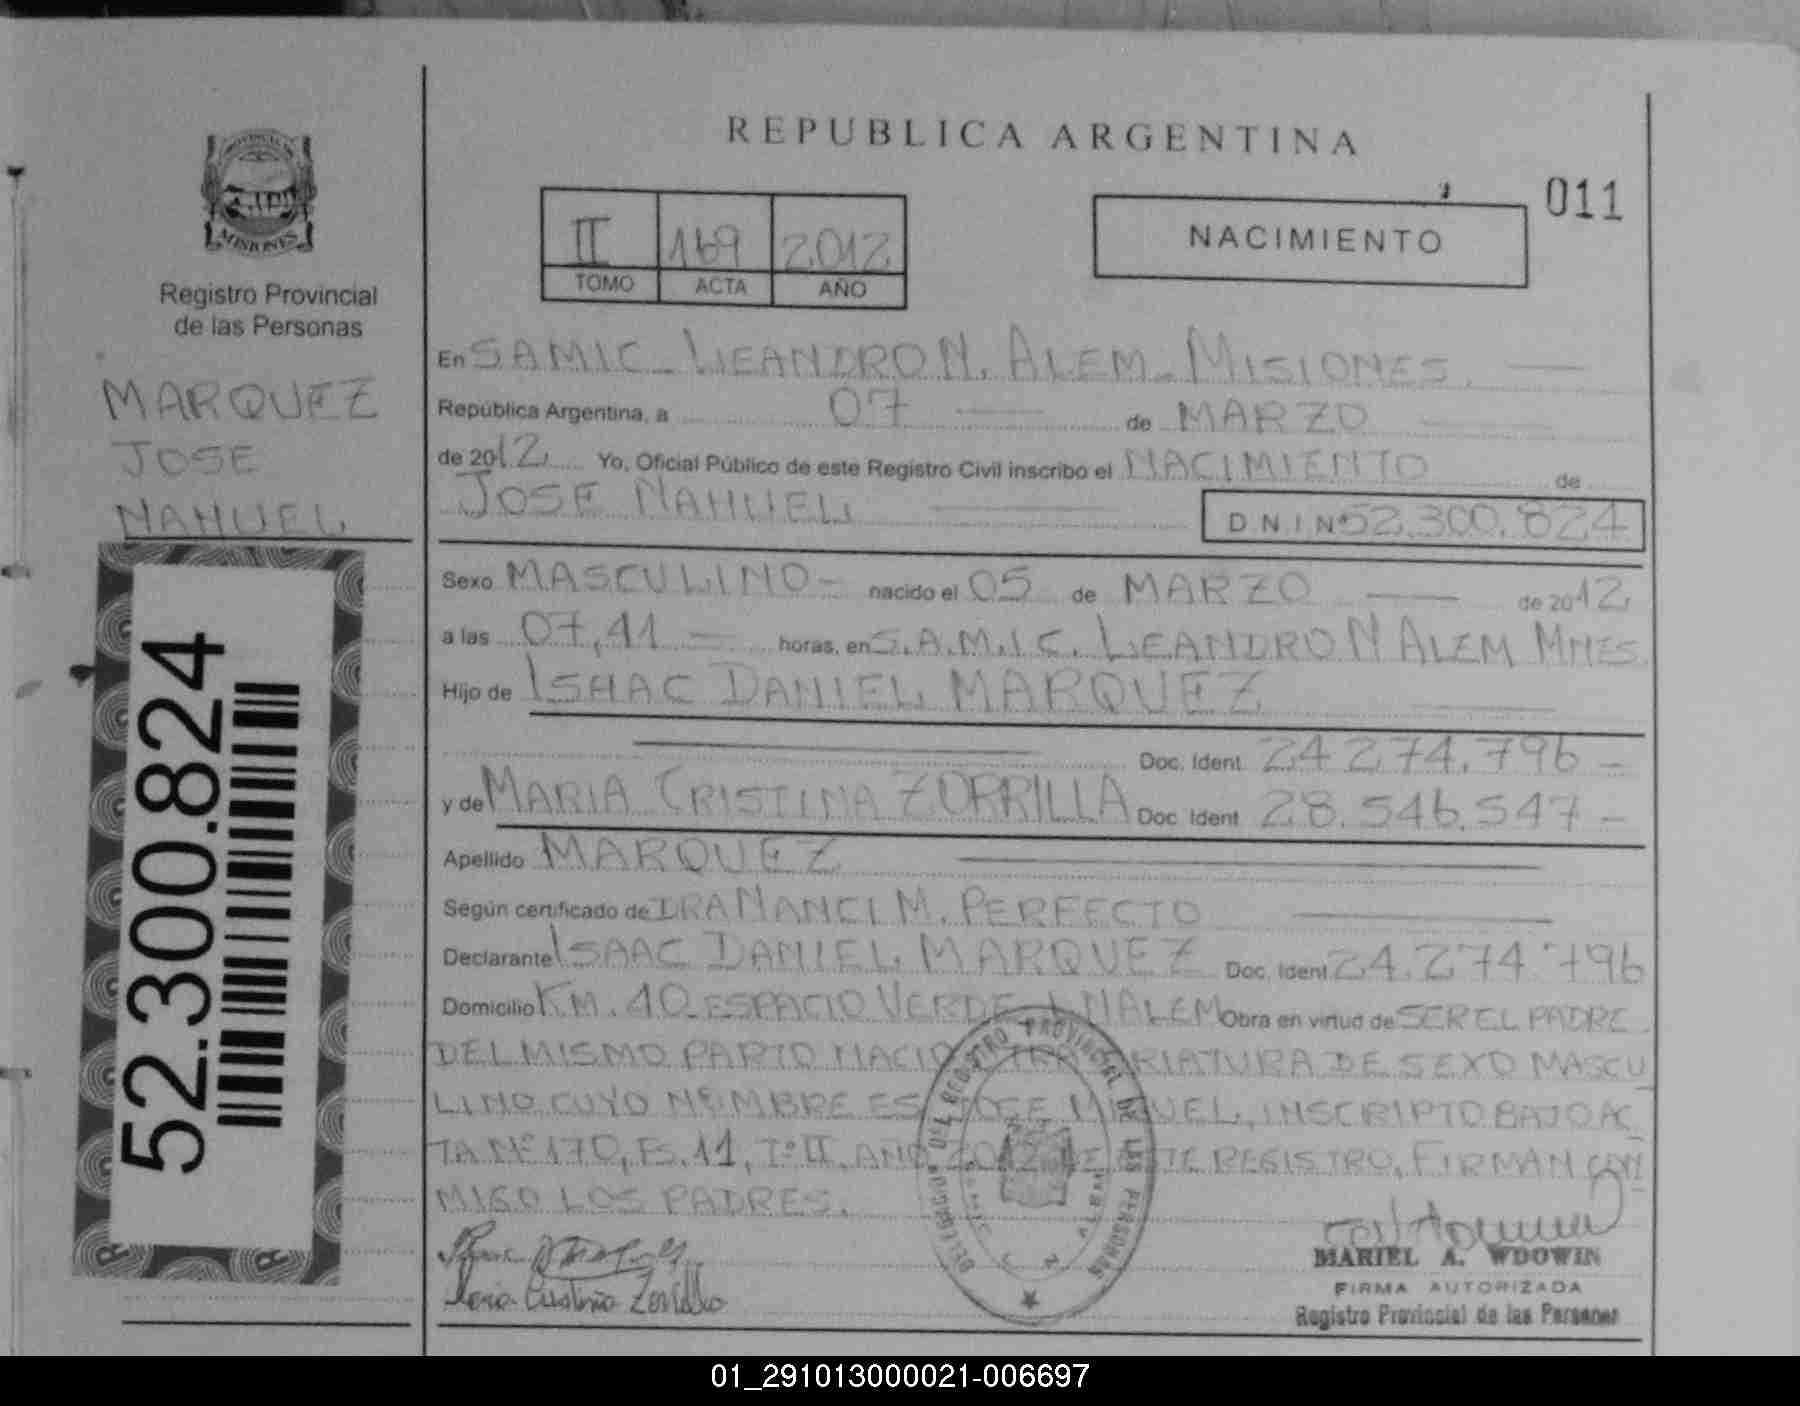 REPUBLICA ARGENTINA
011
PROVINCIA DE
MISIONES
Registro Provincial
de las Personas
MARQUEZ
JOSE
NAHUEL
52.300.824
II 169 2012
TOMO ACTA AÑO
NACIMIENTO
En SAMIC - LEANDRO N. ALEM - MISIONES.
República Argentina, a 07 de MARZO
de 2012 Yo, Oficial Público de este Registro Civil inscribo el NACIMIENTO de
JOSE NAHUEL D.N.I.Nº 52.300.824
Sexo MASCULINO - nacido el 05 de MARZO de 2012
a las 07,41 horas, en S.A.M.I.C. LEANDRO N ALEM MNES.
Hijo de ISAAC DANIEL MARQUEZ
Doc. Ident 24.274.796 -
y de MARIA CRISTINA ZORRILLA Doc. Ident 28.546.547 -
Apellido MARQUEZ
Según certificado de DRA NANCI M. PERFECTO
Declarante ISAAC DANIEL MARQUEZ Doc. Ident 24.274.796
Domicilio KM. 40 ESPACIO VERDE L N ALEM Obra en virtud de SER EL PADRE
DEL MISMO PARTO NACIO OTRA CRIATURA DE SEXO MASCU
LINO CUYO NOMBRE ES JOSE MIGUEL, INSCRIPTO BAJO AC
TA Nº 170, Fs. 11, Tº II, AÑO 2012 DE ESTE REGISTRO, FIRMAN CON
MIGO LOS PADRES.
DEL REGISTRO PROVINCIAL DE LAS PERSONAS
Maria Cristina Zorrilla
MARIEL A. WDOWIN
FIRMA AUTORIZADA
Registro Provincial de las Personas
01_291013000021-006697